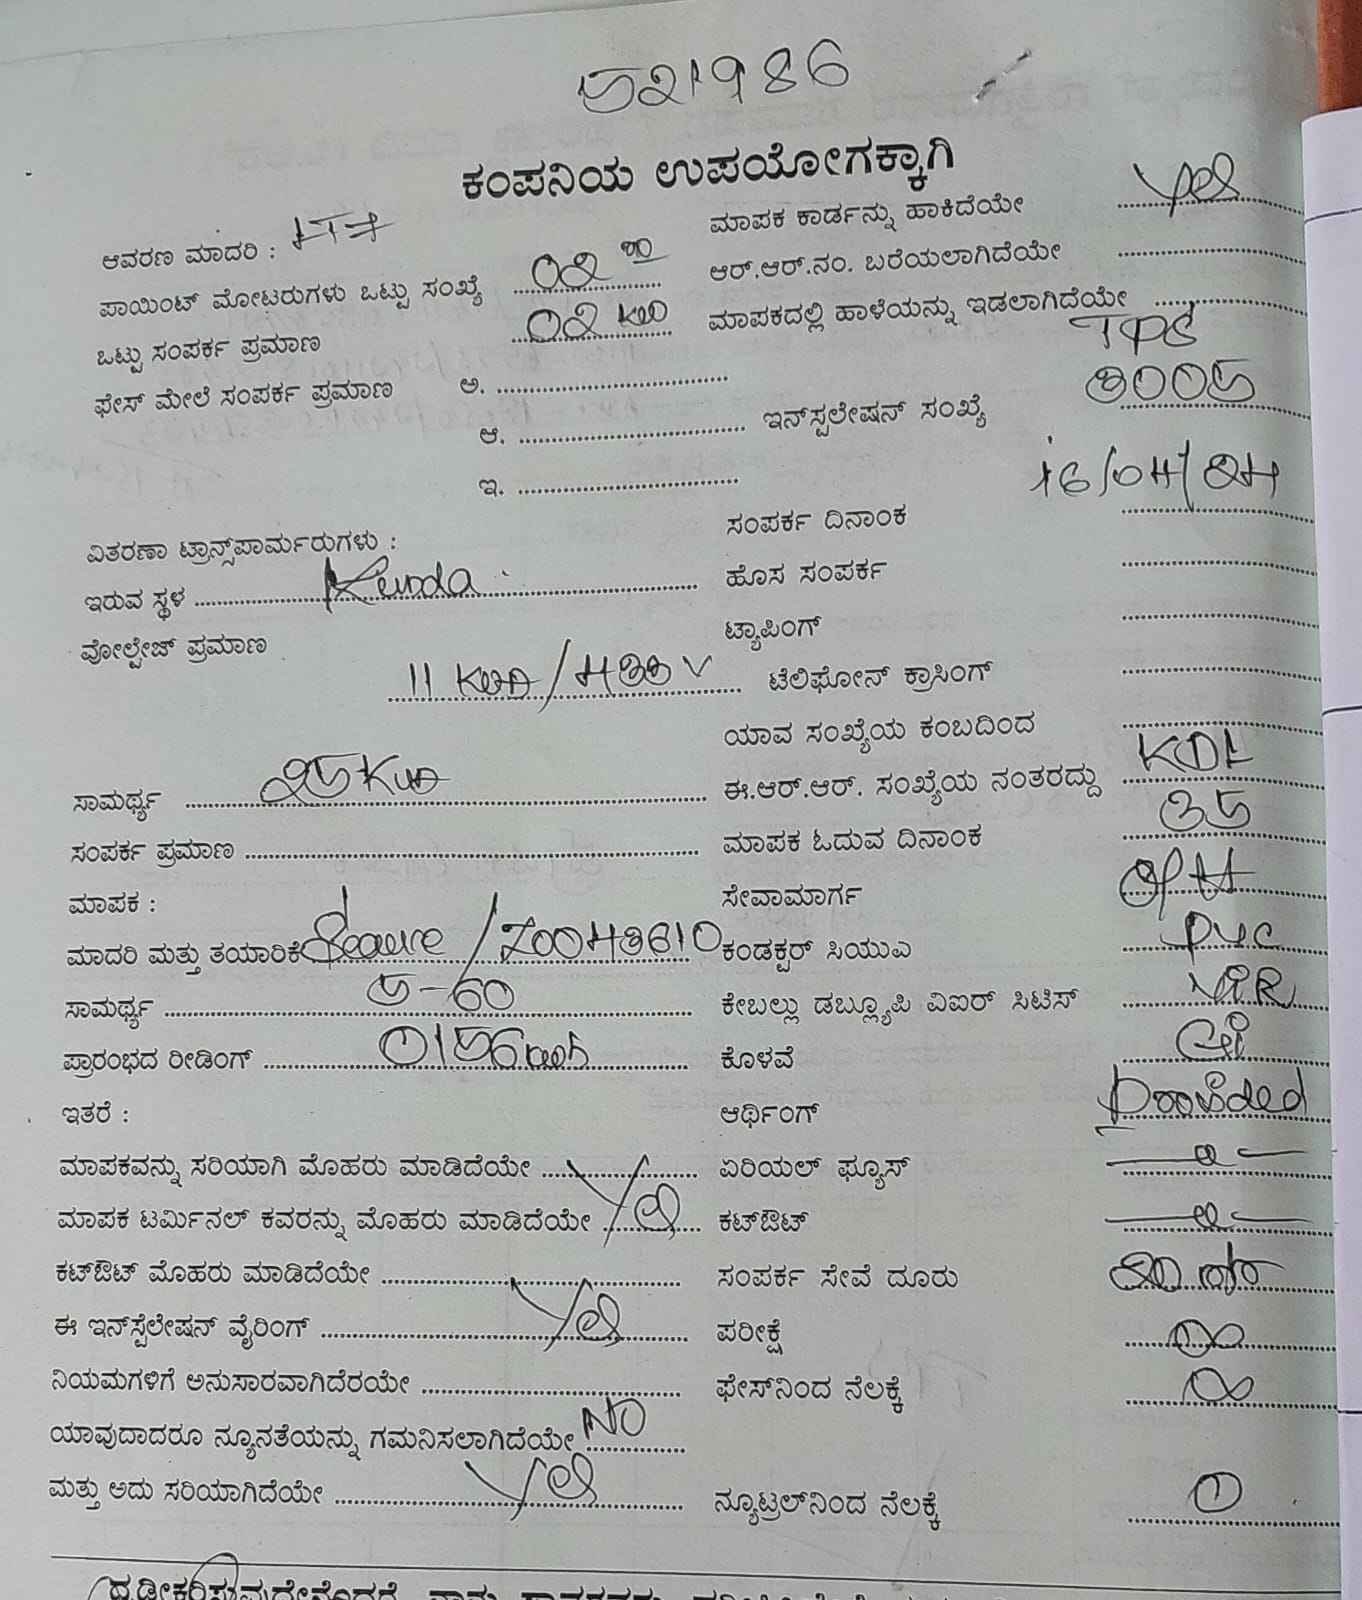 521986
ಕಂಪನಿಯ ಉಪಯೋಗಕ್ಕಾಗಿ
ಆವರಣ ಮಾದರಿ :
ಪಾಯಿಂಟ್ ಮೋಟರುಗಳು ಒಟ್ಟು ಸಂಖ್ಯೆ 02
ಒಟ್ಟು ಸಂಪರ್ಕ ಪ್ರಮಾಣ 02 KW
ಫೇಸ್ ಮೇಲೆ ಸಂಪರ್ಕ ಪ್ರಮಾಣ ಅ.
ಆ.
ಇ.
ವಿತರಣಾ ಟ್ರಾನ್ಸ್‌ಪಾರ್ಮರುಗಳು :
ಇರುವ ಸ್ಥಳ Kunda
ವೋಲ್ಟೇಜ್ ಪ್ರಮಾಣ
11 /433 V
ಸಾಮರ್ಥ್ಯ 25
ಸಂಪರ್ಕ ಪ್ರಮಾಣ
ಮಾಪಕ :
ಮಾದರಿ ಮತ್ತು ತಯಾರಿಕೆ Secure /Z0043610
ಸಾಮರ್ಥ್ಯ 5-60
ಪ್ರಾರಂಭದ ರೀಡಿಂಗ್
ಇತರೆ :
ಮಾಪಕವನ್ನು ಸರಿಯಾಗಿ ಮೊಹರು ಮಾಡಿದೆಯೇ
ಮಾಪಕ ಟರ್ಮಿನಲ್ ಕವರನ್ನು ಮೊಹರು ಮಾಡಿದೆಯೇ Yes
ಕಟ್‌ಔಟ್ ಮೊಹರು ಮಾಡಿದೆಯೇ
ಈ ಇನ್‌ಸ್ಟೆಲೇಷನ್ ವೈರಿಂಗ್ Yes
ನಿಯಮಗಳಿಗೆ ಅನುಸಾರವಾಗಿದೆರಯೇ
ಯಾವುದಾದರೂ ನ್ಯೂನತೆಯನ್ನು ಗಮನಿಸಲಾಗಿದೆಯೇ NO
ಮತ್ತು ಅದು ಸರಿಯಾಗಿದೆಯೇ Yes
ಮಾಪಕ ಕಾರ್ಡನ್ನು ಹಾಕಿದೆಯೇ Yes
ಆರ್.ಆರ್.ನಂ. ಬರೆಯಲಾಗಿದೆಯೇ
ಮಾಪಕದಲ್ಲಿ ಹಾಳೆಯನ್ನು ಇಡಲಾಗಿದೆಯೇ
ಇನ್‌ಸ್ಪಲೇಷನ್ ಸಂಖ್ಯೆ 3005
ಸಂಪರ್ಕ ದಿನಾಂಕ 16/04/24
ಹೊಸ ಸಂಪರ್ಕ
ಟ್ಯಾಪಿಂಗ್
ಟೆಲಿಫೋನ್ ಕ್ರಾಸಿಂಗ್
ಯಾವ ಸಂಖ್ಯೆಯ ಕಂಬದಿಂದ
ಈ.ಆರ್.ಆರ್. ಸಂಖ್ಯೆಯ ನಂತರದ್ದು KDL
ಮಾಪಕ ಓದುವ ದಿನಾಂಕ 35
ಸೇವಾಮಾರ್ಗ
ಕಂಡಕ್ಟರ್ ಸಿಯುಎ PVC
ಕೇಬಲ್ಲು ಡಬ್ಲ್ಯೂಪಿ ವಿಐರ್ ಸಿಟಿಸ್ V.I.R
ಕೊಳವೆ
ಆರ್ಥಿಂಗ್ Provided
ಏರಿಯಲ್ ಫ್ಯೂಸ್
ಕಟ್‌ಔಟ್
ಸಂಪರ್ಕ ಸೇವೆ ದೂರು
ಪರೀಕ್ಷೆ ∞
ಫೇಸ್‌ನಿಂದ ನೆಲಕ್ಕೆ ∞
ನ್ಯೂಟ್ರಲ್‌ನಿಂದ ನೆಲಕ್ಕೆ